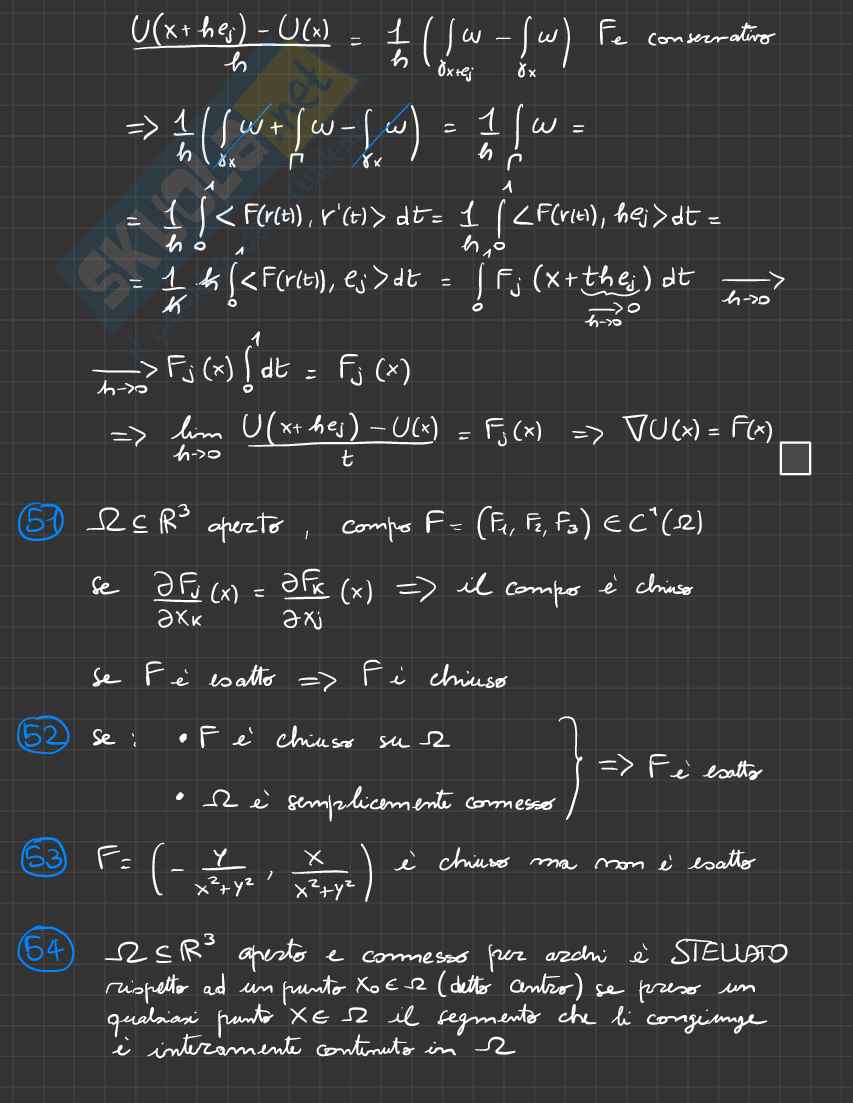 U(x+hej) - U(x) / h = 1/h (∫γx+ej ω - ∫γx ω) F è conservativo
=> 1/h (∫γx ω + ∫Γ ω - ∫γx ω) = 1/h ∫Γ ω =
= 1/h ∫₀¹ <F(r(t)), r'(t)> dt = 1/h ∫₀¹ <F(r(t)), hej> dt =
= 1/h h ∫₀¹ <F(r(t)), ej> dt = ∫₀¹ Fj (x + thej) dt →h→0
h→0
→h→0 Fj(x) ∫₀¹ dt = Fj(x)
=> lim h→0 U(x+hej) - U(x) / t = Fj(x) => ∇U(x) = F(x) □
51 Ω ⊆ ℝ³ aperto, campo F = (F₁, F₂, F₃) ∈ C¹(Ω)
se ∂Fj/∂xK (x) = ∂FK/∂xj (x) => il campo è chiuso
se F è esatto => F è chiuso
52 se : • F è chiuso su Ω
• Ω è semplicemente connesso } => F è esatto
53 F = (- y/x²+y² , x/x²+y²) è chiuso ma non è esatto
54 Ω ⊆ ℝ³ aperto e connesso per archi è STELLATO
rispetto ad un punto x₀ ∈ Ω (detto centro) se preso un
qualsiasi punto x ∈ Ω il segmento che li congiunge
è interamente contenuto in Ω
SKUOLA.net